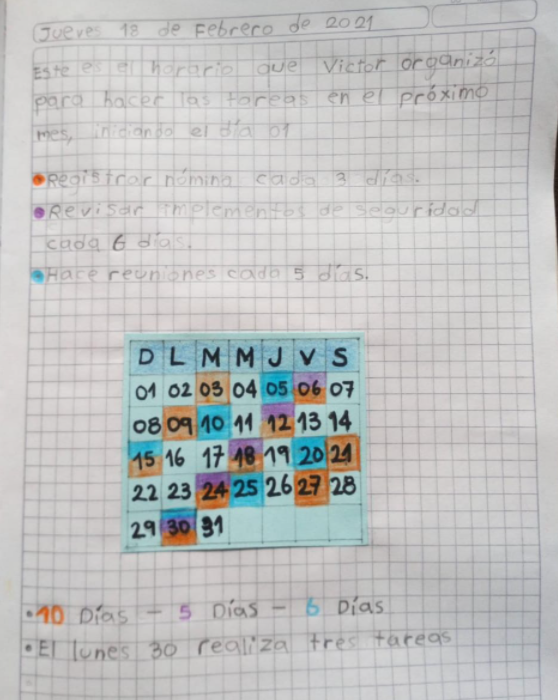 Jueves 18 de Febrero de 2021
Este es el horario que Victor organizó
para hacer las tareas en el próximo
mes, iniciando el día 01
Registrar nómina cada 3 días.
Revisar implementos de seguridad
cada 6 días.
Hace reuniones cada 5 días.
D L M M J V S
01 02 03 04 05 06 07
08 09 10 11 12 13 14
15 16 17 18 19 20 21
22 23 24 25 26 27 28
29 30 31
10 Días - 5 Días - 6 Días
El lunes 30 realiza tres tareas